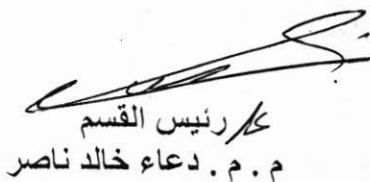 ع/ رئيس القسم
م . م . دعاء خالد ناصر